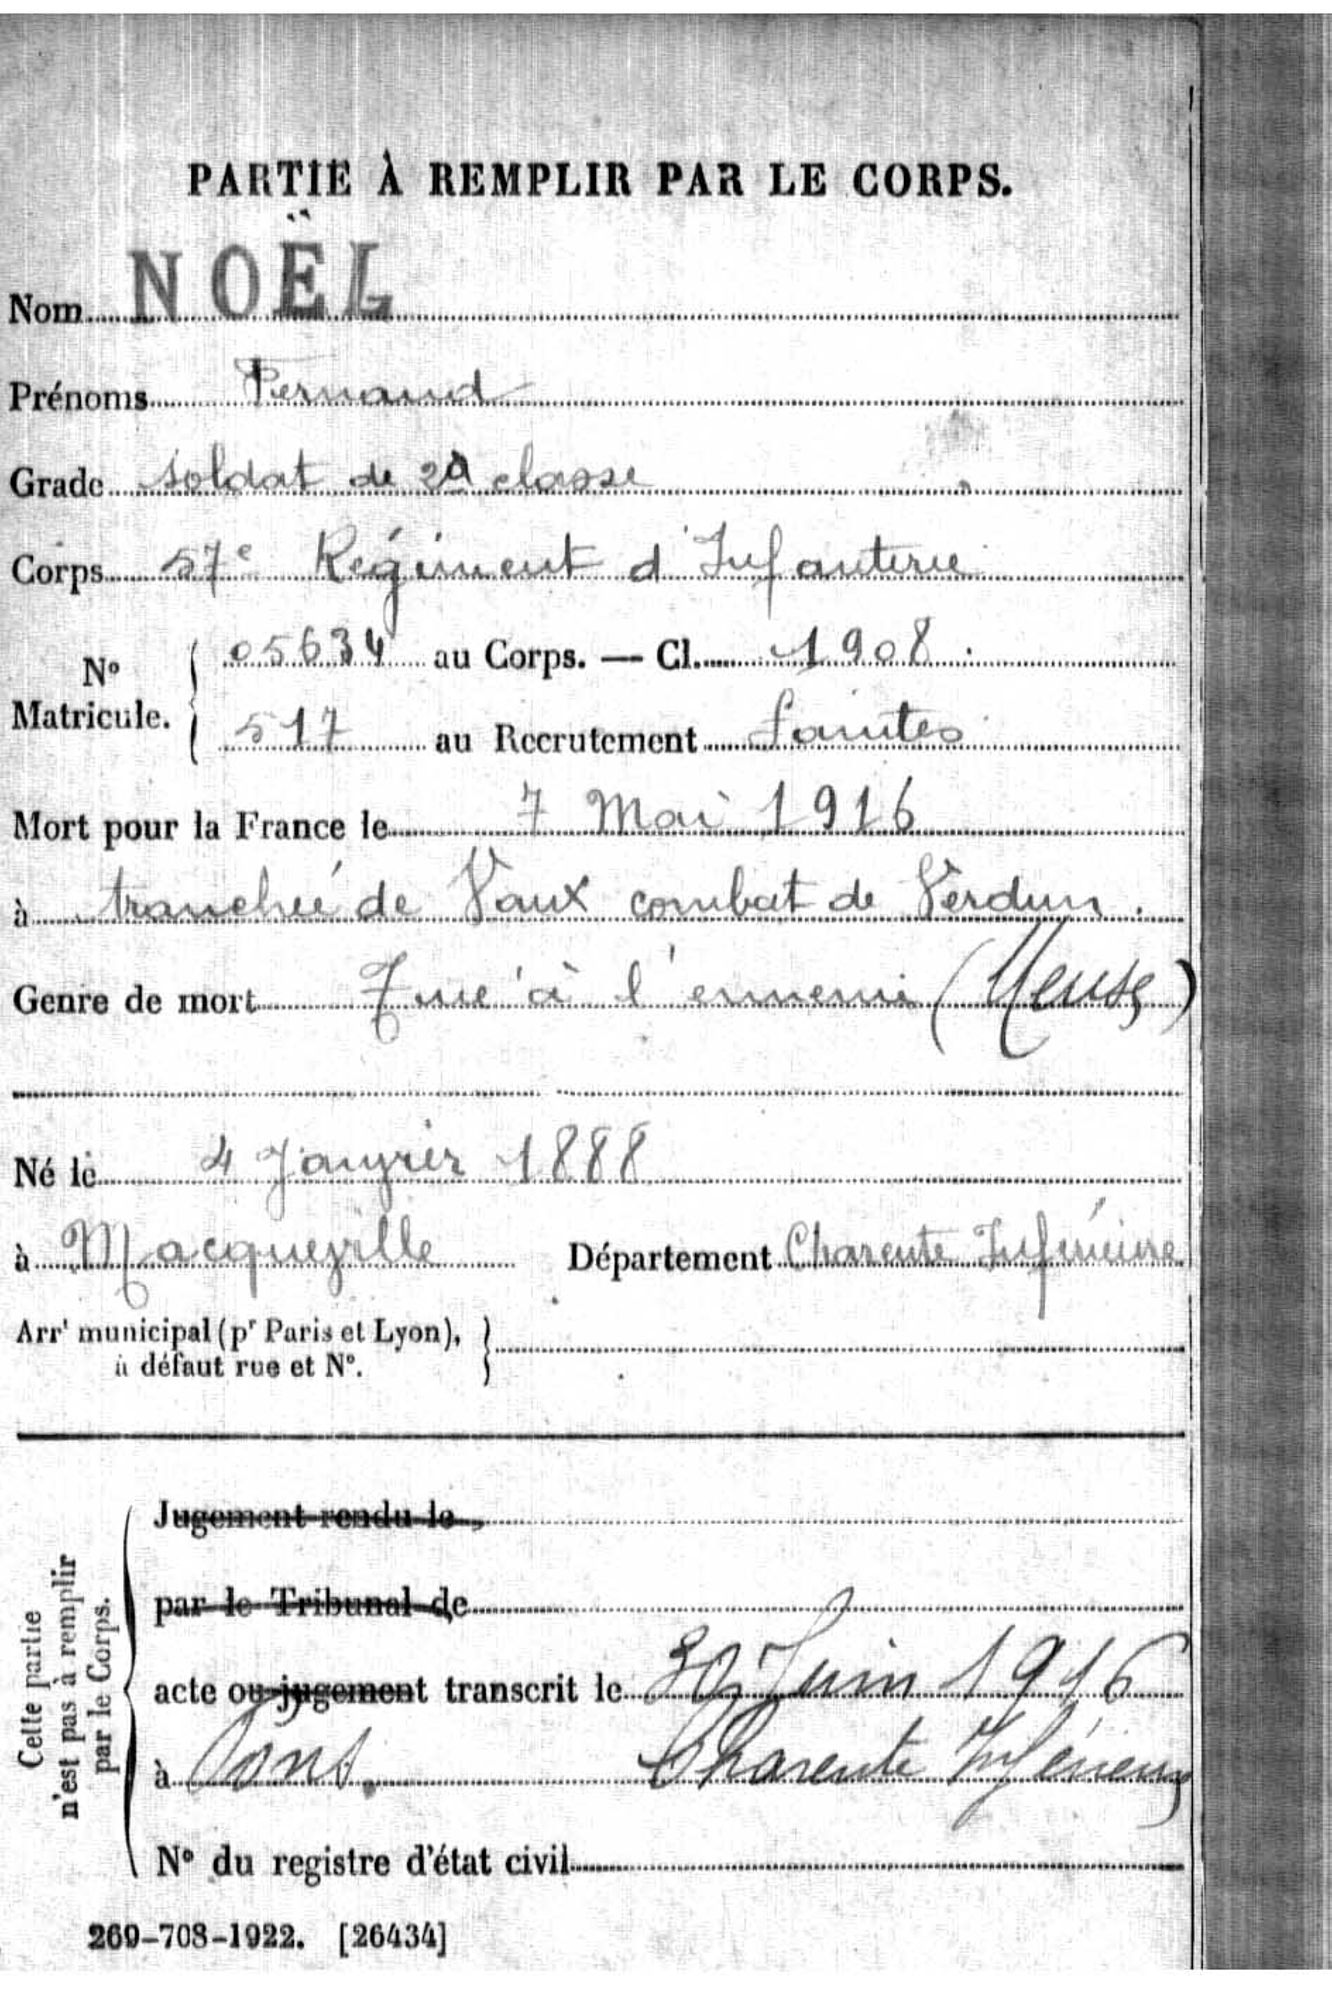 PARTIE À REMPLIR PAR LE CORPS.
Nom NOËL
Prénoms Fernand
Grade soldat de 2e classe
Corps 57e Régiment d'Infanterie
N° Matricule. 05634 au Corps. — Cl. 1908
517 au Recrutement Saintes
Mort pour la France le 7 Mai 1916
à tranchée de Vaux combat de Verdun.
Genre de mort Tué à l'ennemi (Meuse)
Né le 4 Janvier 1888
à Macqueville Département Charente Inférieure
Arrt municipal (pr Paris et Lyon),
à défaut rue et N°.
Cette partie n'est pas à remplir par le Corps.
Jugement rendu le
par le Tribunal de
acte ou jugement transcrit le 30 Juin 1916
à Pons. Charente Inférieure
N° du registre d'état civil
269-708-1922. [26434]